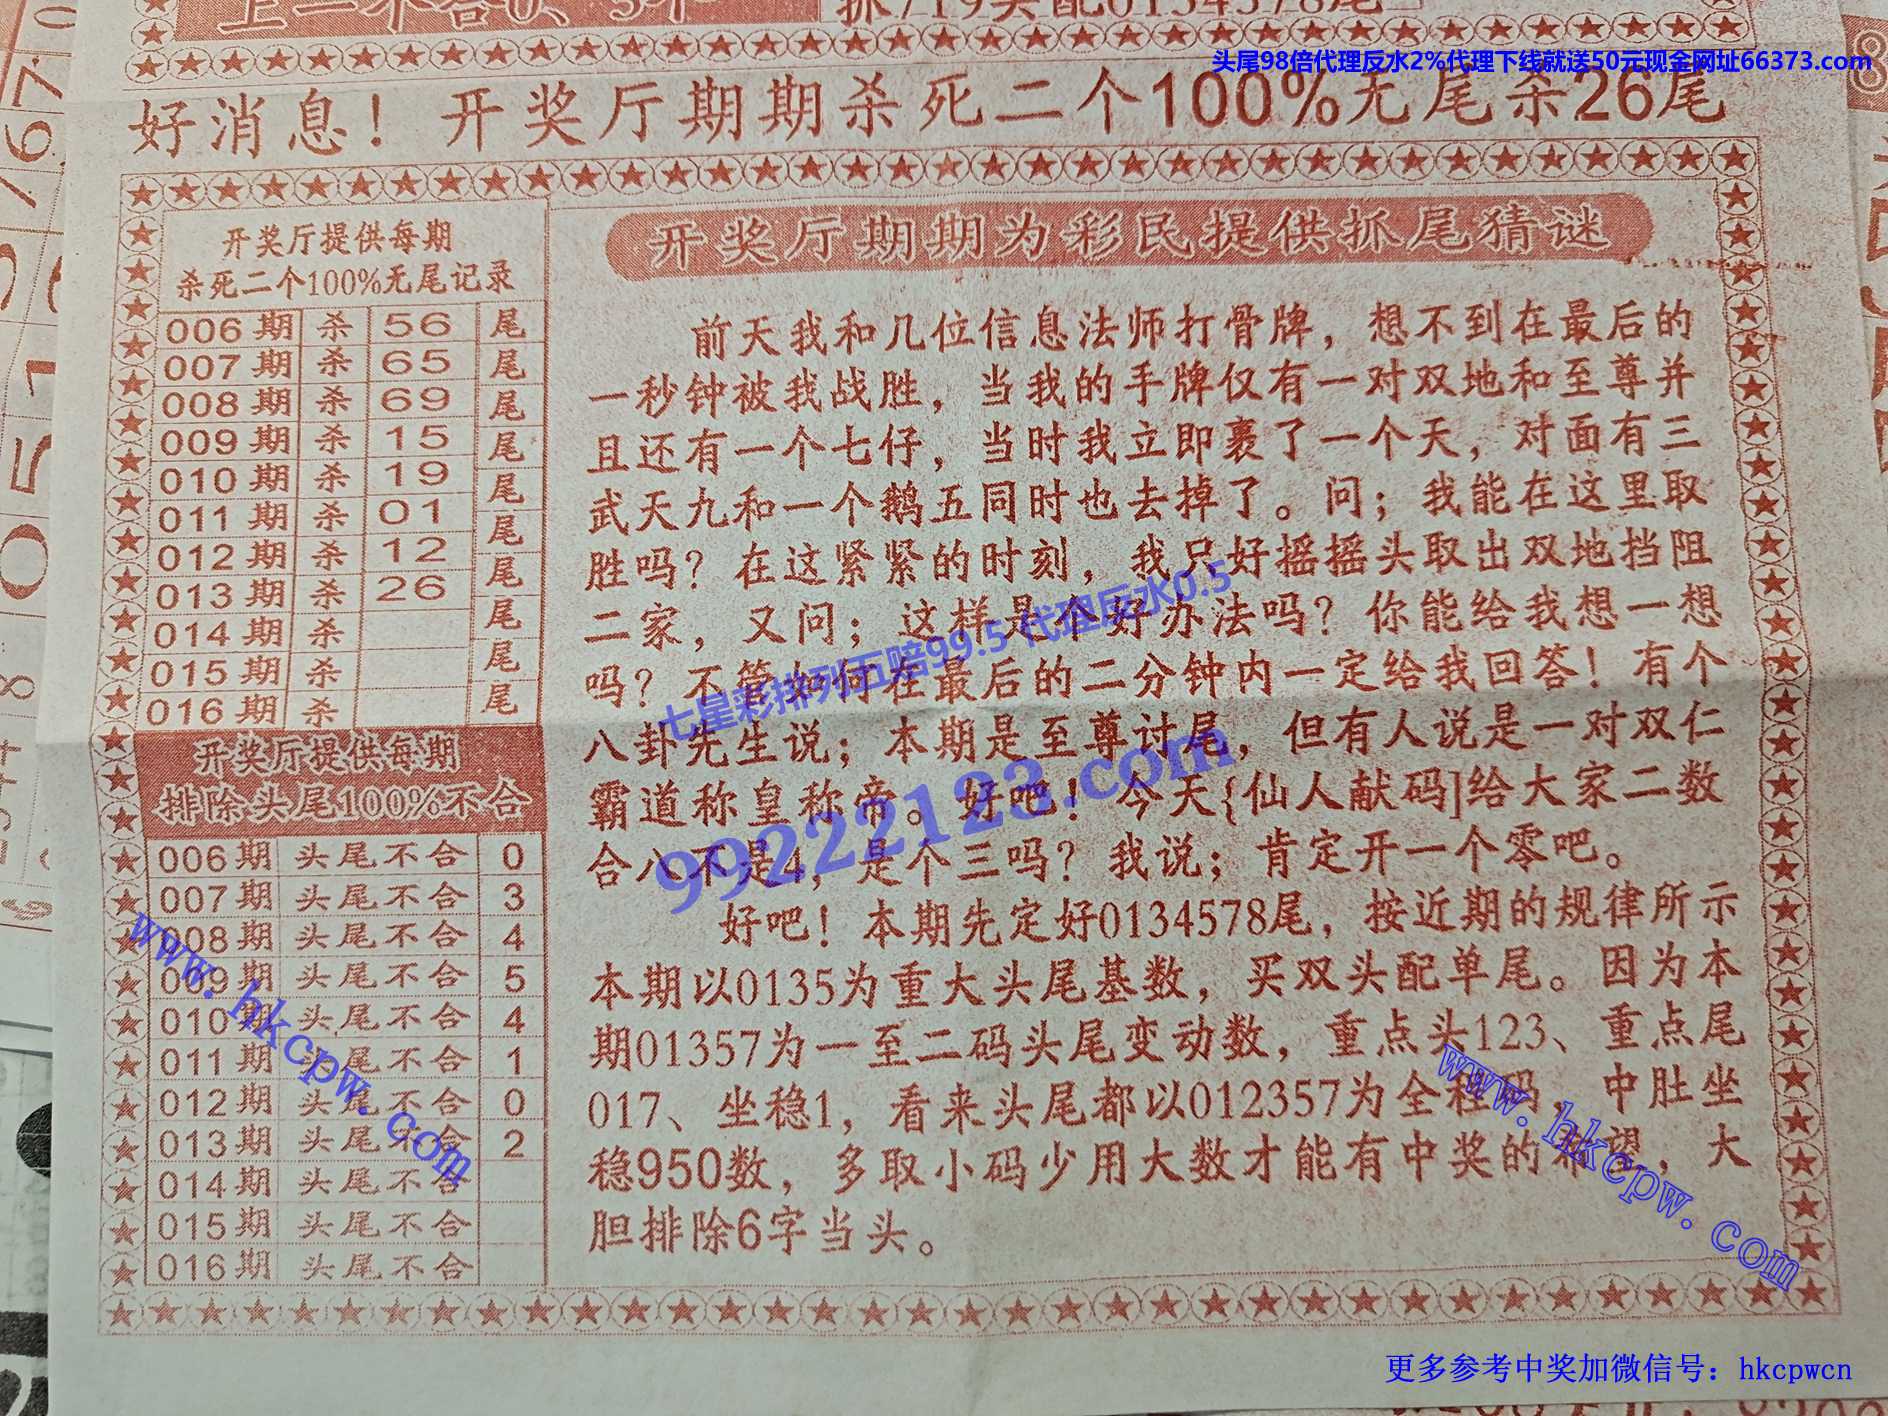 抓719头配0134578尾
头尾98倍代理反水2%代理下线就送50元现金网址66373.com
好消息！开奖厅期期杀死二个100%无尾杀26尾
开奖厅提供每期
杀死二个100%无尾记录
006期 杀 56 尾
007期 杀 65 尾
008期 杀 69 尾
009期 杀 15 尾
010期 杀 19 尾
011期 杀 01 尾
012期 杀 12 尾
013期 杀 26 尾
014期 杀 尾
015期 杀 尾
016期 杀
开奖厅提供每期
排除头尾100%不合
006期 头尾不合 0
007期 头尾不合 3
008期 头尾不合 4
009期 头尾不合 5
010期 头尾不合 4
011期 头尾不合 1
012期 头尾不合 0
013期 头尾不合 2
014期 头尾不合
015期 头尾不合
016期 头尾不合
开奖厅期期为彩民提供抓尾猜谜
前天我和几位信息法师打骨牌，想不到在最后的
一秒钟被我战胜，当我的手牌仅有一对双地和至尊并
且还有一个七仔，当时我立即裹了一个天，对面有三
武天九和一个鹅五同时也去掉了。问；我能在这里取
胜吗？在这紧紧的时刻，我只好摇摇头取出双地挡阻
二家，又问；这样是个好办法吗？你能给我想一想
吗？不管如何在最后的二分钟内一定给我回答！有个
八卦先生说；本期是至尊讨尾，但有人说是一对双仁
霸道称皇称帝。好吧！今天{仙人献码]给大家二数
合八不是4，是个三吗？我说；肯定开一个零吧。
好吧！本期先定好0134578尾，按近期的规律所示
本期以0135为重大头尾基数，买双头配单尾。因为本
期01357为一至二码头尾变动数，重点头123、重点尾
017、坐稳1，看来头尾都以012357为全程码，中肚坐
稳950数，多取小码少用大数才能有中奖的希望，大
胆排除6字当头。
七星彩排列五赔99.5 代理反水0.5
99222123.com
www.hkcpw.com
www.hkcpw.com
更多参考中奖加微信号：hkcpwcn